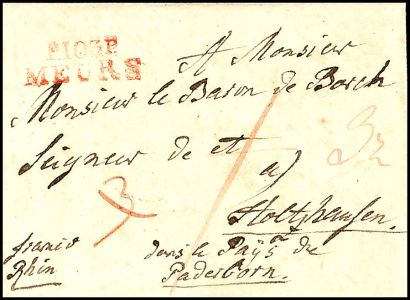 P103P
MEURS
A Monsieur
Monsieur le Baron de Borch
Seigneur de et
a)
Holtzhausen.
franco
Rhin
dans le Paÿs de
Paderborn.